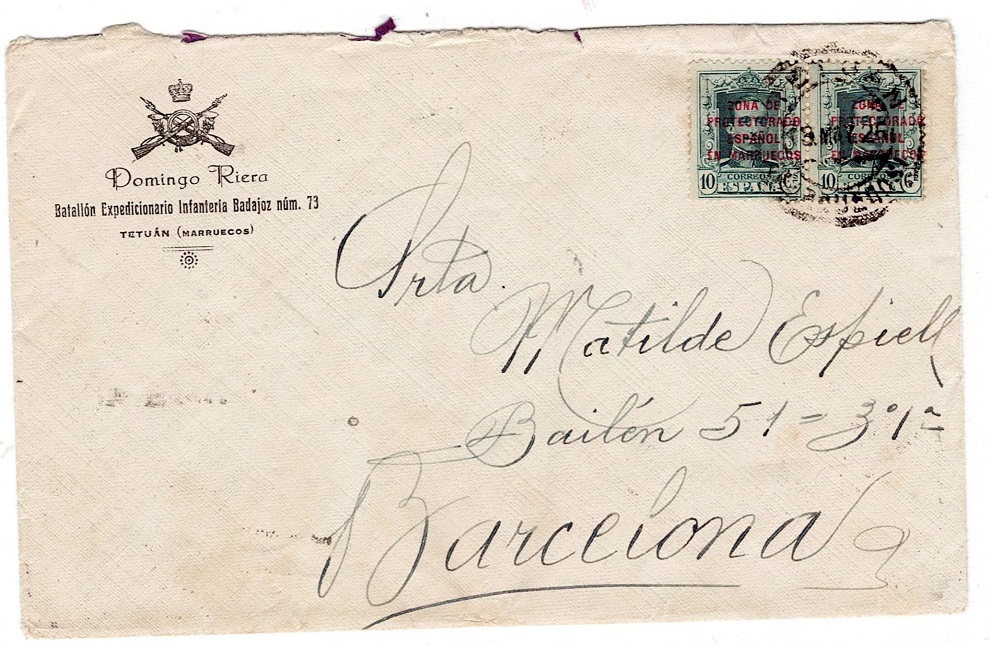 Domingo Riera
Batallón Expedicionario Infantería Badajoz núm. 73
TETUÁN (MARRUECOS)
ZONA DE
PROTECTORADO
ESPAÑOL
EN MARRUECOS
CORREOS
10 ESPAÑA Cs
ZONA DE
PROTECTORADO
ESPAÑOL
EN MARRUECOS
CORREOS
10 ESPAÑA Cs
Srta.
Matilde Espiell
Bailén 51 = 3º1ª
Barcelona